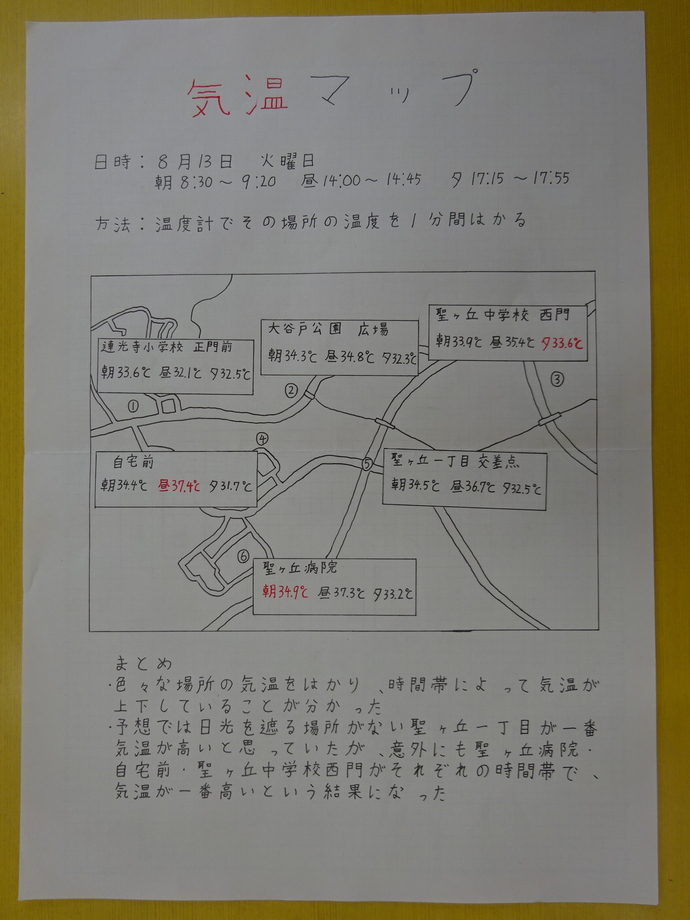 気温マップ
日時：8月13日 火曜日
朝8:30～9:20 昼14:00～14:45 夕17:15～17:55
方法：温度計でその場所の温度を1分間はかる
聖ヶ丘中学校 西門
朝33.9℃ 昼35.4℃ 夕33.6℃
大谷戸公園 広場
朝34.3℃ 昼34.8℃ 夕32.3℃
連光寺小学校 正門前
朝33.6℃ 昼32.1℃ 夕32.5℃
①
②
③
④
自宅前
朝34.4℃ 昼37.4℃ 夕31.7℃
⑤
聖ヶ丘一丁目 交差点
朝34.5℃ 昼36.7℃ 夕32.5℃
⑥
聖ヶ丘病院
朝34.9℃ 昼37.3℃ 夕33.2℃
まとめ
・色々な場所の気温をはかり、時間帯によって気温が
上下していることが分かった
・予想では日光を遮る場所がない聖ヶ丘一丁目が一番
気温が高いと思っていたが、意外にも聖ヶ丘病院・
自宅前・聖ヶ丘中学校西門がそれぞれの時間帯で、
気温が一番高いという結果になった